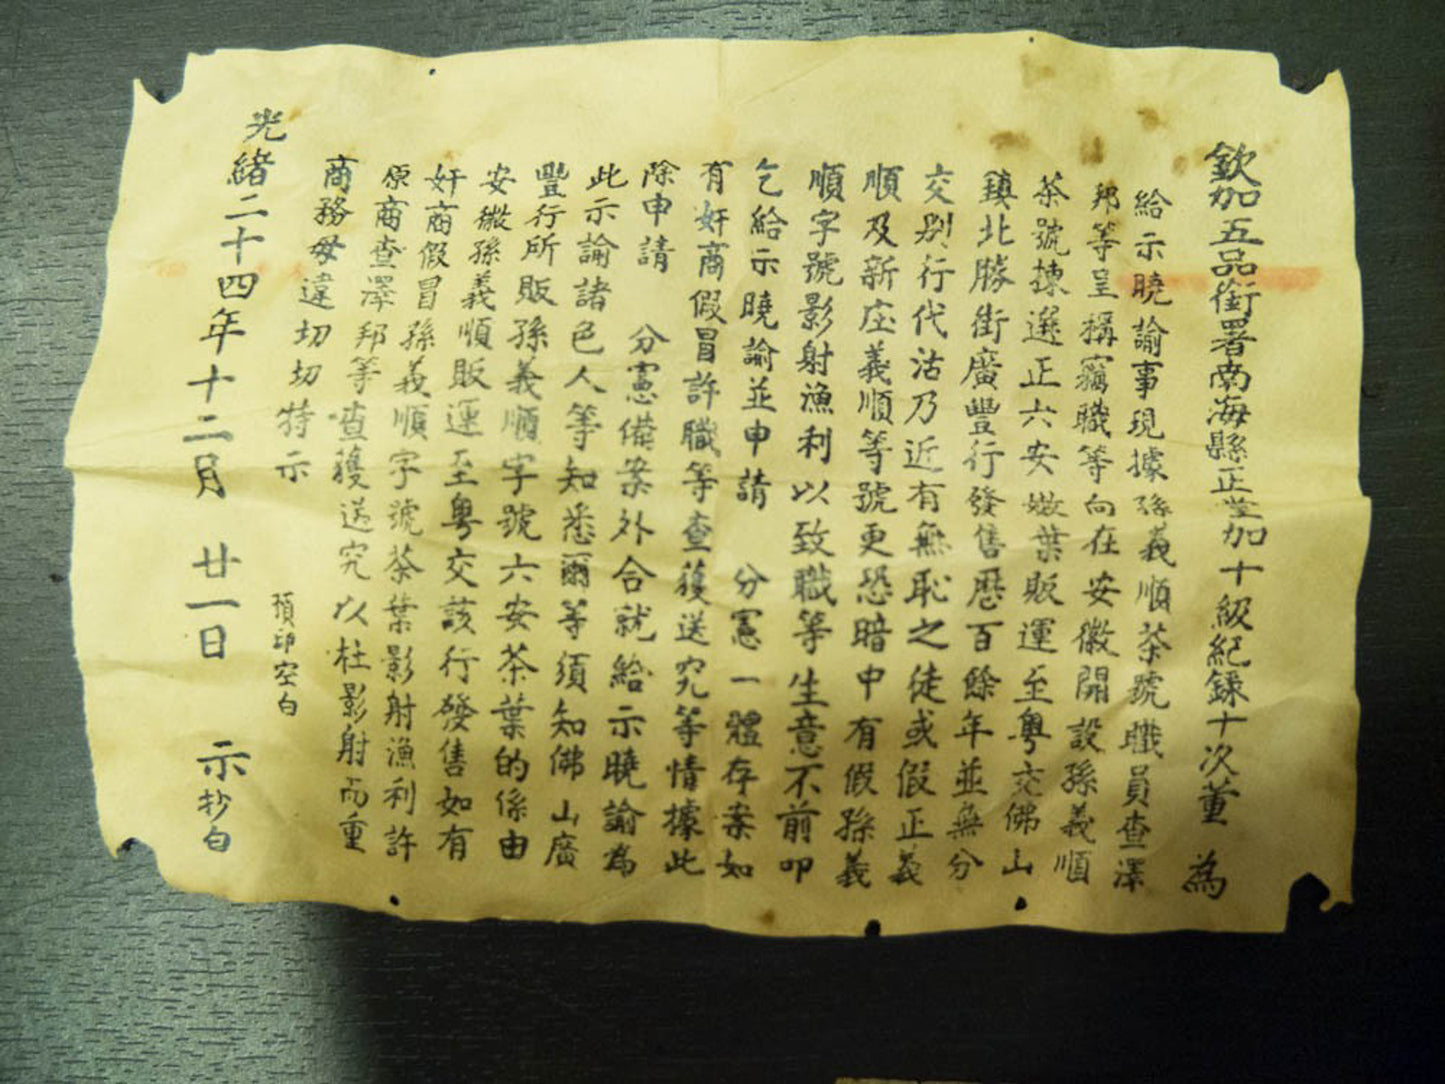 欽加五品銜署南海縣正堂加十級紀錄十次董 為
給示曉諭事現據孫義順茶號職員查澤
邦等呈稱竊職等向在安徽開設孫義順
茶號揀選正六安嫩葉販運至粵交佛山
鎮北勝街廣豐行發售歷百餘年並無分
交別行代沽乃近有無恥之徒或假正義
順及新庄義順等號更恐暗中有假孫義
順字號影射漁利以致職等生意不前叩
乞給示曉諭並申請 分憲一體存案如
有奸商假冒許職等查獲送究等情據此
除申請 分憲備案外合就給示曉諭為
此示諭諸色人等知悉爾等須知佛山廣
豐行所販孫義順字號六安茶葉的係由
安徽孫義順販運至粵交該行發售如有
奸商假冒孫義順字號茶葉影射漁利許
原商查澤邦等查獲送究以杜影射而重
商務毋違切切特示
預印空白
光緒二十四年十二月 廿一日 示抄白